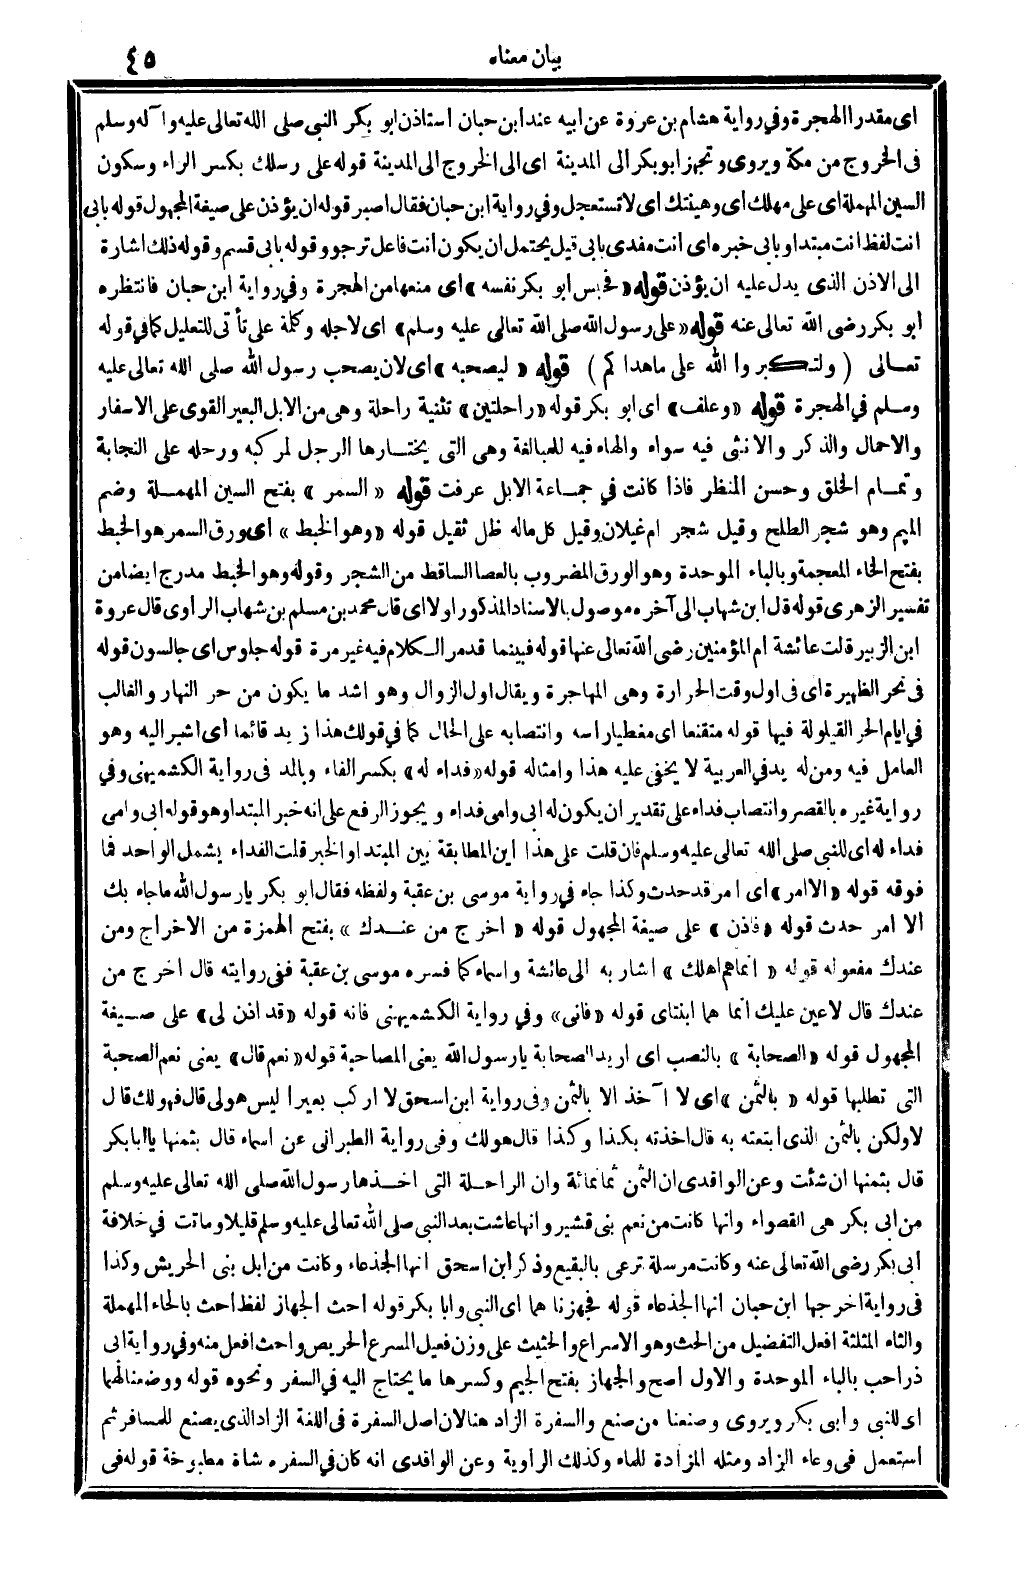 بيان معناه ٤٥
اى مقدرا الهجرة وفي رواية هشام بن عروة عن ابيه عند ابن حبان استاذن ابو بكر النبي صلى الله تعالى عليه وآله وسلم
فى الخروج من مكة ويروى وتجهز ابو بكر الى المدينة اى الى الخروج الى المدينة قوله على رسلك بكسر الراء وسكون
السين المهملة اى على مهلك اى وهينتك اى لا تستعجل وفي رواية ابن حبان فقال اصبر قوله ان يؤذن على صيغة المجهول قوله بابى
انت لفظ انت مبتدا وبابى خبره اى انت مفدى بابى قيل يحتمل ان يكون انت فاعل ترجو وقوله بابى قسم وقوله ذلك اشارة
الى الاذن الذى يدل عليه ان يؤذن قوله «فحبس ابو بكر نفسه» اى منعها من الهجرة وفي رواية ابن حبان فانتظره
ابو بكر رضى الله تعالى عنه قوله «على رسول الله صلى الله تعالى عليه وسلم» اى لاجله وكلمة على تأتى للتعليل كما في قوله
تعالى (ولتكبروا الله على ما هداكم) قوله «ليصحبه» اى لان يصحب رسول الله صلى الله تعالى عليه
وسلم في الهجرة قوله «وعلف» اى ابو بكر قوله «راحلتين» تثنية راحلة وهى من الابل البعير القوى على الاسفار
والاحمال والذكر والانثى فيه سواء والهاء فيه للمبالغة وهى التى يختارها الرجل لمركبه ورحله على النجابة
وتمام الخلق وحسن المنظر فاذا كانت في جماعة الابل عرفت قوله «السمر» بفتح السين المهملة وضم
الميم وهو شجر الطلح وقيل شجر ام غيلان وقيل كل ماله ظل ثقيل قوله «وهو الخبط» اى ورق السمر هو الخبط
بفتح الخاء المعجمة وبالباء الموحدة وهو الورق المضروب بالعصا الساقط من الشجر وقوله وهو الخبط مدرج ايضا من
تفسير الزهرى قوله قال ابن شهاب الى آخره موصول بالاسناد المذكور اولا اى قال محمد بن مسلم بن شهاب الراوى قال عروة
ابن الزبير قالت عائشة ام المؤمنين رضى الله تعالى عنها قوله فبينما قد مر الكلام فيه غير مرة قوله جلوس اى جالسون قوله
فى نحر الظهيرة اى فى اول وقت الحرارة وهى المهاجرة ويقال اول الزوال وهو اشد ما يكون من حر النهار والغالب
في ايام الحر القيلولة فيها قوله متقنعا اى مغطيا راسه وانتصابه على الحال كما في قولك هذا زيد قائما اى اشير اليه وهو
العامل فيه ومن له يد في العربية لا يخفى عليه هذا وامثاله قوله «فداء له» بكسر الفاء وبالمد فى رواية الكشميهنى وفي
رواية غيره بالقصر وانتصاب فداء على تقدير ان يكون له ابى وامى فداء ويجوز الرفع على انه خبر المبتدا وهو قوله ابى وامى
فداء له اى للنبى صلى الله تعالى عليه وسلم فان قلت على هذا اين المطابقة بين المبتدا والخبر قلت الفداء يشمل الواحد فما
فوقه قوله «الا امر» اى امر قد حدث وكذا جاء في رواية موسى بن عقبة ولفظه فقال ابو بكر يا رسول الله ما جاء بك
الا امر حدث قوله «فاذن» على صيغة المجهول قوله «اخرج من عندك» بفتح الهمزة من الاخراج ومن
عندك مفعوله قوله «انما هم اهلك» اشار به الى عائشة واسماء كما فسره موسى بن عقبة ففى روايته قال اخرج من
عندك قال لا عين عليك انما هما ابنتاى قوله «فانى» وفي رواية الكشميهنى فانه قوله «قد اذن لى» على صيغة
المجهول قوله «الصحابة» بالنصب اى اريد الصحابة يا رسول الله يعنى المصاحبة قوله «نعم قال» يعنى نعم الصحبة
التى تطلبها قوله «بالثمن» اى لا آخذ الا بالثمن وفى رواية ابن اسحق لا اركب بعيرا ليس هو لى قال فهو لك قال
لا ولكن بالثمن الذى ابتعته به قال اخذته بكذا وكذا قال هو لك وفى رواية الطبرانى عن اسماء قال بثمنها يا ابا بكر
قال بثمنها ان شئت وعن الواقدى ان الثمن ثمانمائة وان الراحلة التى اخذها رسول الله صلى الله تعالى عليه وسلم
من ابى بكر هى القصواء وانها كانت من نعم بنى قشير وانها عاشت بعد النبى صلى الله تعالى عليه وسلم قليلا وماتت في خلافة
ابى بكر رضى الله تعالى عنه وكانت مرسلة ترعى بالبقيع وذكر ابن اسحق انها الجذعاء وكانت من ابل بنى الحريش وكذا
فى رواية اخرجها ابن حبان انها الجذعاء قوله فجهزناهما اى النبى وابا بكر قوله احث الجهاز لفظ احث بالحاء المهملة
والثاء المثلثة افعل التفضيل من الحث وهو الاسراع والحثيث على وزن فعيل المسرع الحريص واحث افعل منه وفي رواية ابى
ذر احب بالباء الموحدة والاول اصح والجهاز بفتح الجيم وكسرها ما يحتاج اليه في السفر ونحوه قوله ووضعنا لهما
اى للنبى وابى بكر ويروى وصنعنا من صنع والسفرة الزاد هنا لان اصل السفرة فى اللغة الزاد الذى يصنع للمسافر ثم
استعمل فى وعاء الزاد ومثله المزادة للماء وكذلك الراوية وعن الواقدى انه كان في السفره شاة مطبوخة قوله فى